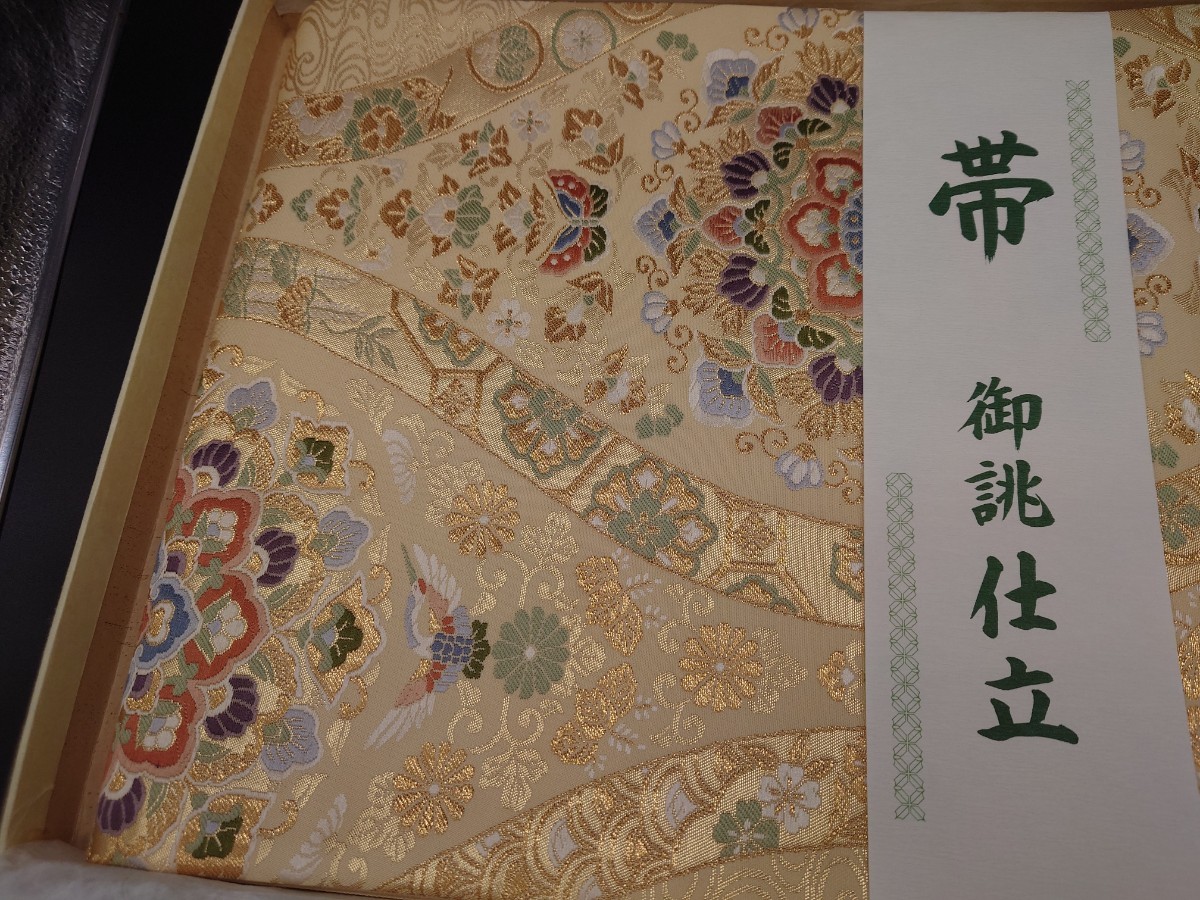 帯 御誂仕立